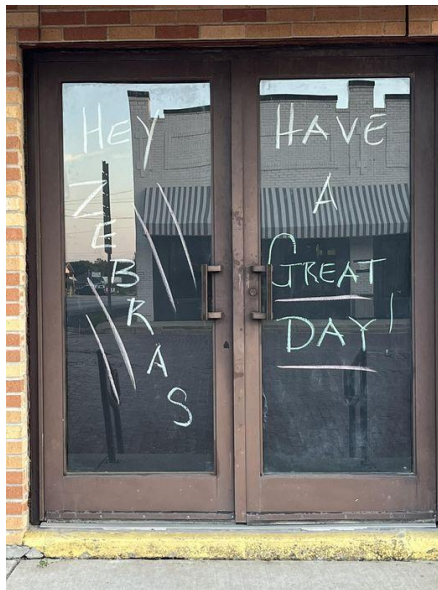 Hey
ZEBRAS
HAVE
A
GREAT
DAY!